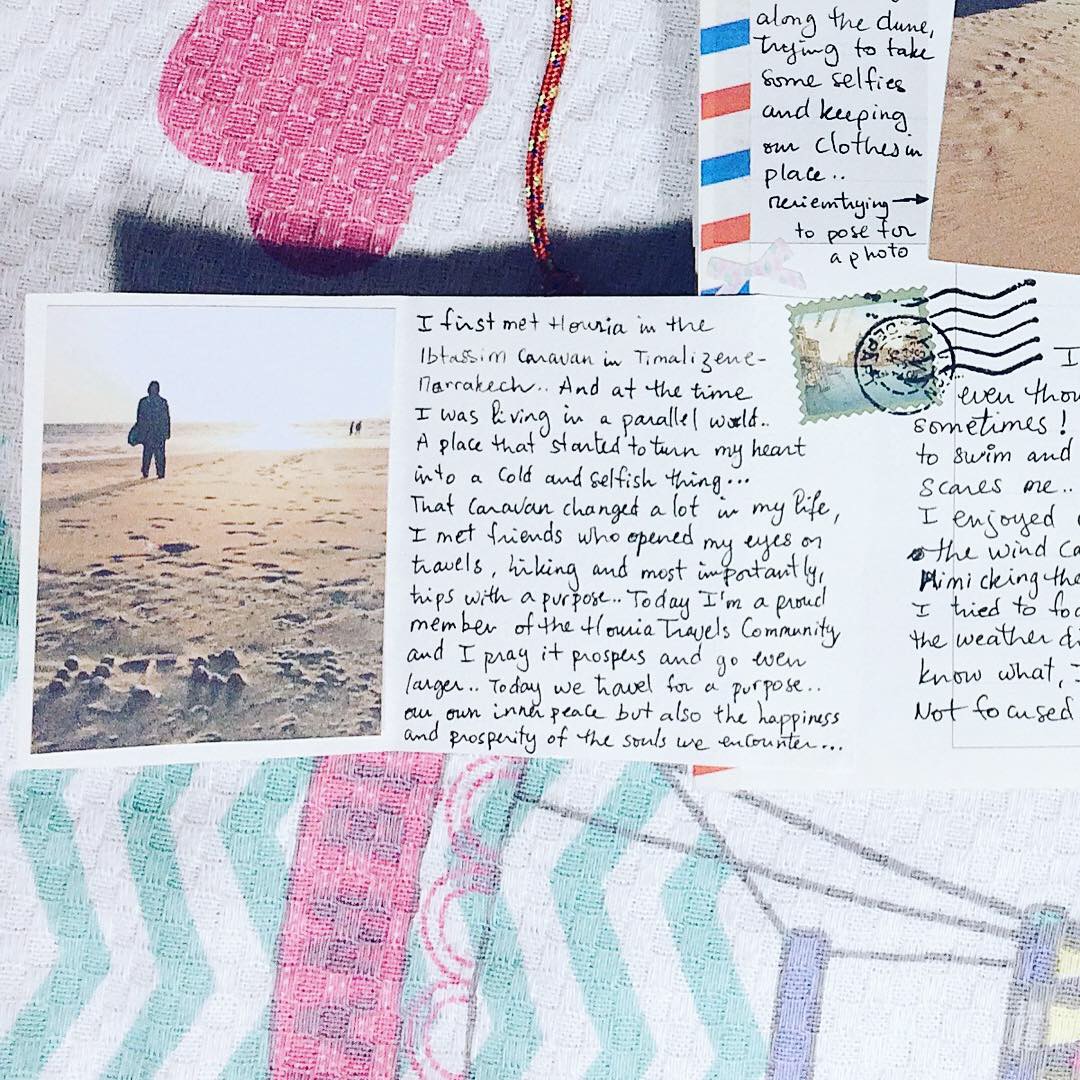 along the dune,
trying to take
some selfies
and keeping
our clothes in
place..
to pose for
a photo
I first met Houria in the
Ibtassim Caravan in Timalizene-
Marrakech.. And at the time
I was living in a parallel world..
A place that started to turn my heart
into a cold and selfish thing...
That Caravan changed a lot in my life,
I met friends who opened my eyes on
travels, hiking and most importantly,
trips with a purpose.. Today I'm a proud
member of the Houria Travels Community
and I pray it prospers and go even
larger.. Today we travel for a purpose..
our own inner peace but also the happiness
and prosperity of the souls we encounter...
I
even thou
sometimes!
to swim and
scares me..
I enjoyed
the wind ca
Mimicking the
I tried to foc
the weather di
know what, I
Not focused